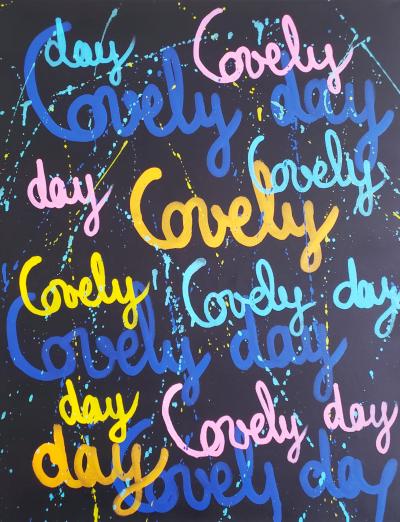 day Lovely
Lovely day
Lovely
day Lovely
Lovely Lovely day
Lovely day
day Lovely day
day Lovely day